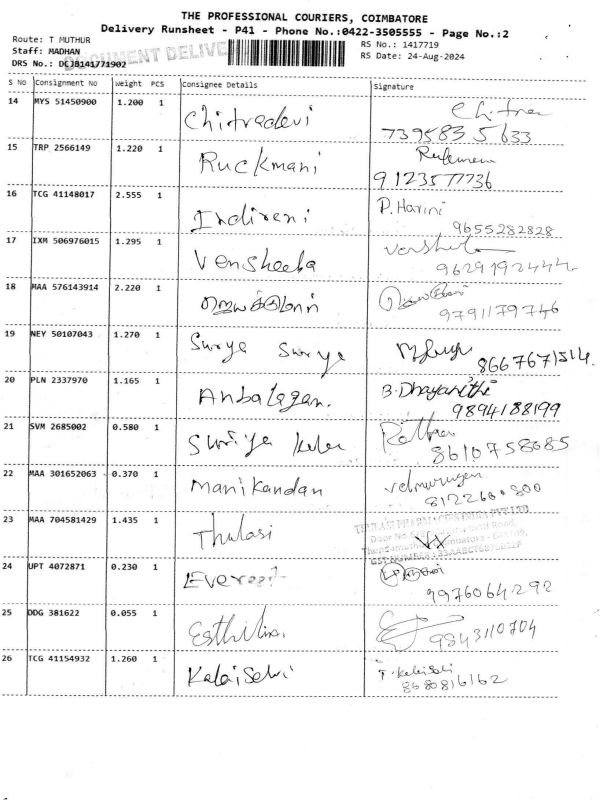 THE PROFESSIONAL COURIERS, COIMBATORE
Delivery Runsheet - P41 - Phone No.:0422-3505555 - Page No.:2
Route: T MUTHUR
RS No.: 1417719
Staff: MADHAN
RS Date: 24-Aug-2024
DOCUMENT DELIVE
DRS No.: DCJB141771902
S No Consignment No Weight PCS Consignee Details Signature
14 MYS 51450900 1.200 1 Chitradevi
7395835633
15 TRP 2566149 1.220 1 Ruckmani
9123577736
16 TCG 41148017 2.555 1 Indireni P. Harini
9655282828
17 IXM 506976015 1.295 1 Vensheeba
9629192444
18 MAA 576143914 2.220 1
9791179746
19 NEY 50107043 1.270 1 Surya Surya
8667671514.
20 PLN 2337970 1.165 1 Anbalagan. B. Dhayanithi
9894188199
21 SVM 2685002 0.580 1 Suriya
8610758685
22 MAA 301652063 0.370 1 Manikandan velmurugan
23 MAA 704581429 1.435 1 Thulasi
24 UPT 4072871 0.230 1
9976064292
25 DDG 381622 0.055 1
9843110704
26 TCG 41154932 1.260 1 Kalaiselvi
8680816162